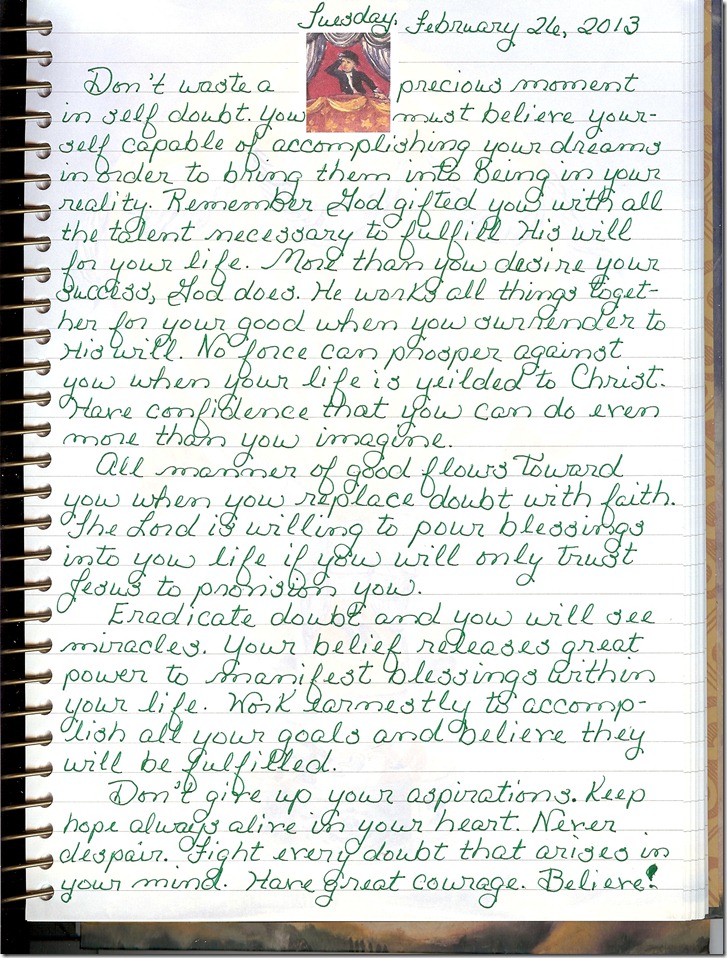 Tuesday. February 26, 2013
Don't waste a precious moment
in self doubt. You must believe your-
self capable of accomplishing your dreams
in order to bring them into Being in your
reality. Remember God gifted you with all
the talent necessary to fulfill His will
for your life. More than you desire your
success, God does. He works all things toget-
her for your good when you surrender to
His will. No force can prosper against
you when your life is yeilded to Christ.
Have confidence that you can do even
more than you imagine.
All manner of good flows toward
you when you replace doubt with faith.
The Lord is willing to pour blessings
into you life if you will only trust
Jesus to provision you.
Eradicate doubt and you will see
miracles. Your belief releases great
power to manifest blessings within
your life. Work earnestly to accomp-
lish all your goals and believe they
will be fulfilled.
Don't give up your aspirations. Keep
hope always alive in your heart. Never
despair. Fight every doubt that arises in
your mind. Have great courage. Believe!